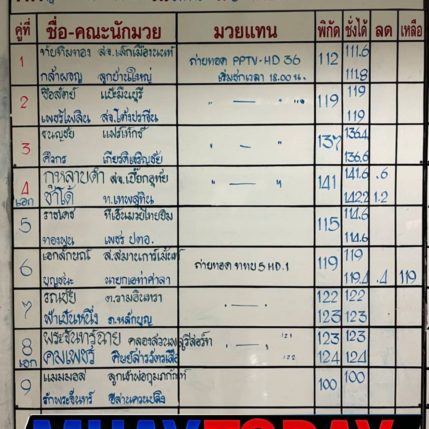 คู่ที่ ชื่อ-คณะนักมวย มวยแทน พิกัด ชั่งได้ ลด เหลือ
1 ถ่ายทอด PPTV-HD 36 112 111.6
เริ่มชกเวลา 18.00 น. 111.8
2 ซื่อสัตย์ " — " 119 119
เพชรไพลิน 119
3 ธนญชัย " — " 137 136.4
ศิวกร 136.6
4 กุหลาบดำ สจ.เปี๊ยกอุทัย " — " 141 141.6 .6
เอก ซาโต้ ท.เทพสุทิน 142.2 1.2
5 ราชเดช 115 114.6
เพชร ปตอ. 114.6
6 เอกลักษณ์ ส.สมานการ์เม้นท์ ถ่ายทอด ททบ 5 HD.1 119 119
บุญชนะ นายกเอท่าศาลา 119.4 .4 119
7 ต.รามอินทรา " — " 122 122
ฟ้าเป็นหนึ่ง ต.หลักบุญ 123 123
8 พระจันทร์ฉาย คลองสวนพลูรีสอร์ท " — " 123 123
เอก คมเพชร ศิษย์สารวัตรเสือ 124 124
9 แมมมอส 100 100
รักพระจันทร์
MUAY TODAY